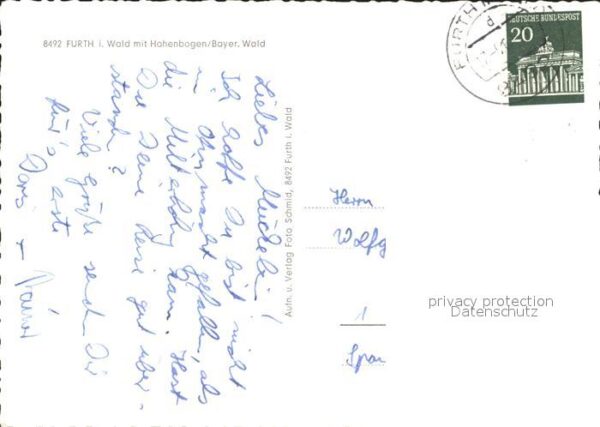 8492 FURTH i. Wald mit Hohenbogen/Bayer. Wald
DEUTSCHE BUNDESPOST
20
FURTH
Liebes Mückelein!
Ich hoffe Du bist nicht
in Ohnmacht gefallen, als
die Mitteilung kam. Hast
Du Deine Reise gut über-
standen?
Viele Grüße senden Dir
für's erste
Doris +
Aufn. u. Verlag Foto Schmid, 8492 Furth i. Wald
Herrn
Wolfg
1
Span
privacy protection
Datenschutz